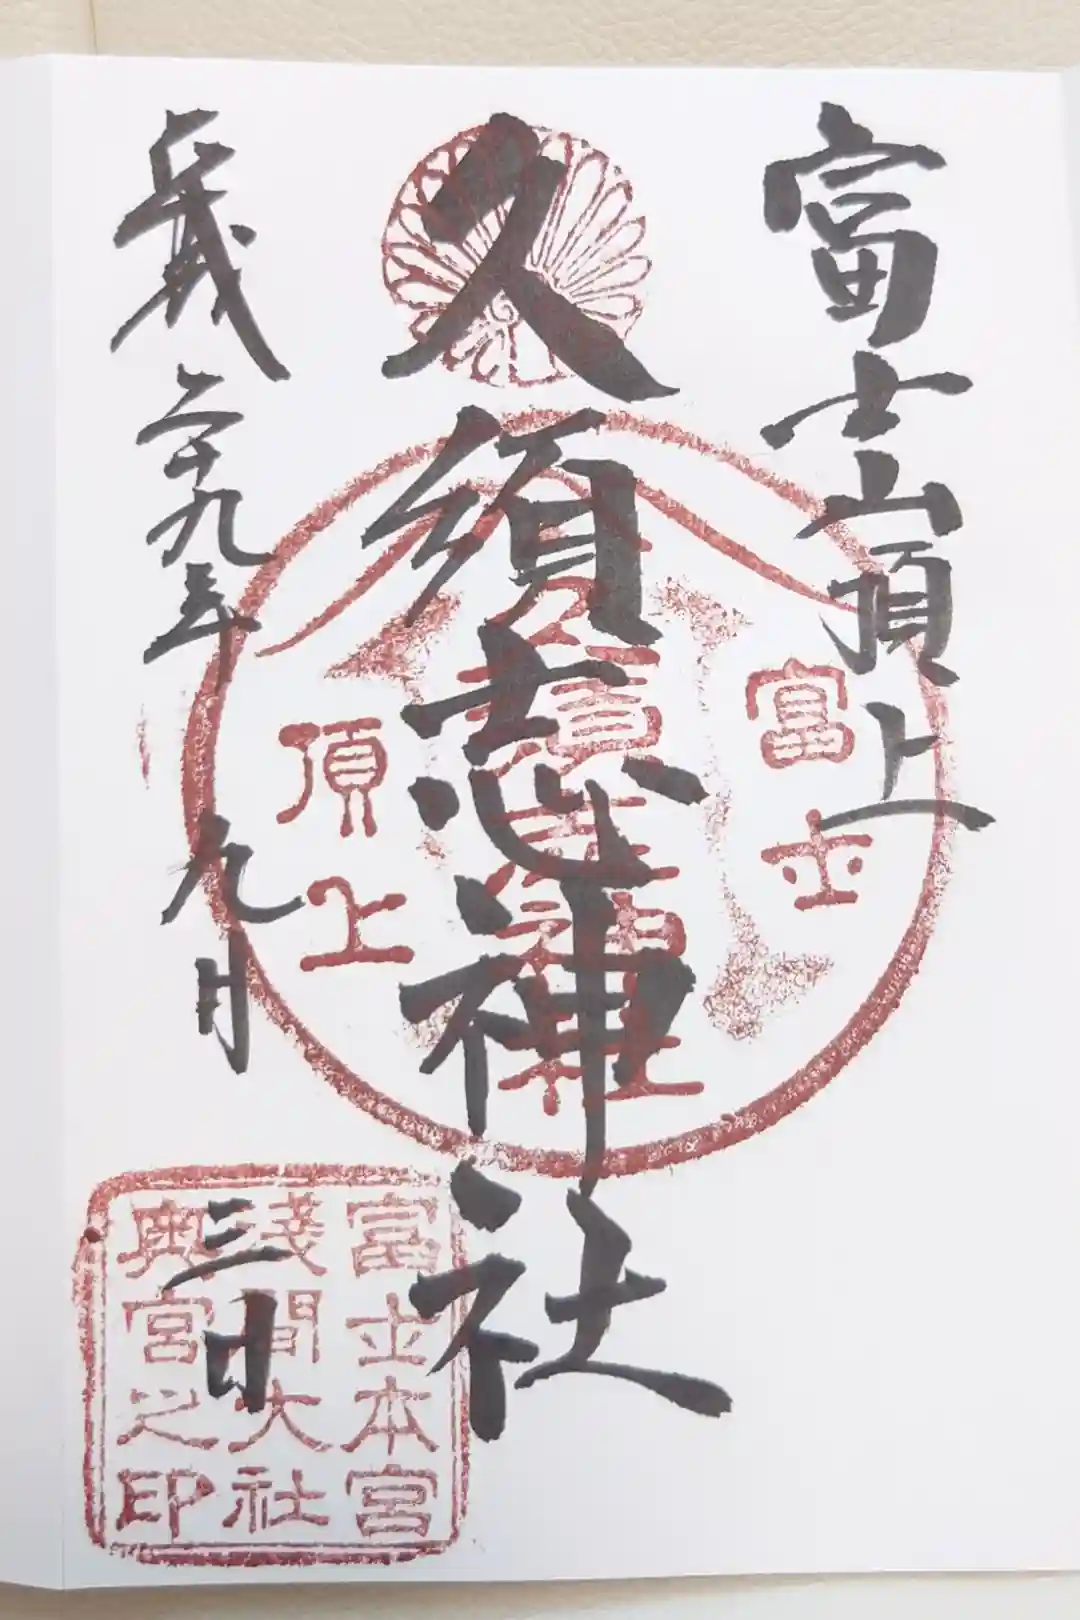 富士山頂上
久須志神社
平成二十九年九月三日
富士
頂上
富士本宮
淺間大社
奥宮之印